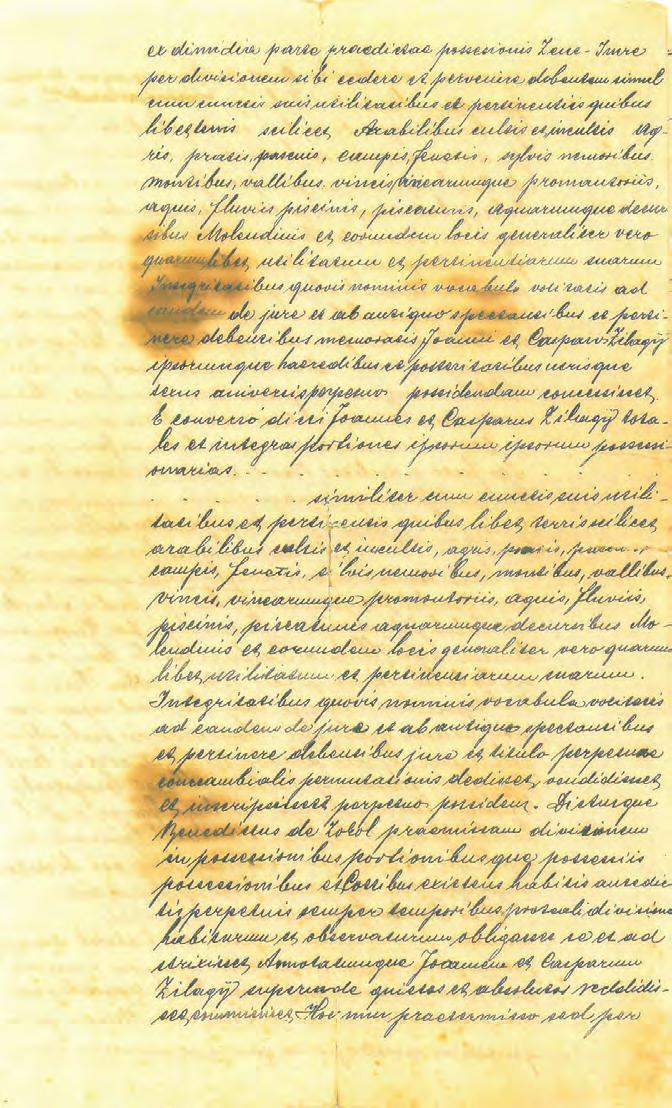 ex dimidia parte praedictae possesionis Zene-Imre
per divisionem sibi cedere et pervenire debentem simul
cum cunctis suis utilitatibus et pertinentiis quibus
libet terris scilicet Arabilibus cultis et incultis Ag-
ris, pratis, pascuis, campis, fenetis, sylvis nemoribus
montibus, vallibus vineis vinearumque promontoriis,
aquis, fluviis piscinis, piscaturis, aquarumque decur
sibus Molendinis et eorumdem locis generaliter vero
quarumlibet utilitatum et pertinentiarum suarum
Integritatibus quovis nominis vocabulo vocitatis ad
eandem de jure et ab antiquo spectantibus et perti-
nere debentibus memoratis Joanni et Casparo Zilagÿ
ipsorumque haeredibus et posteritatibus utrisque
sexus universis perpetuo possidendam concessisset.
E converso dicti Joannes et Casparus Zilagÿ tota-
les et integras portiones ipsorum ipsorum possessi
onarias. . .
. . . . . similiter cum cunctis suis utili-
tatibus et pertinentiis quibus libet terris scilicet
arabilibus cultis et incultis, agris, pratis, pascuis
campis, fenetis, silvis nemoribus, montibus, vallibus,
vineis, vinearumque promontoriis, aquis, fluviis,
piscinis, piscaturis aquarumque decursibus Mo-
lendinis et eorundem locis generaliter vero quarum
libet utilitatum et pertinentiarum suarum.
Integritatibus quovis nominis vocabula vocitatis
ad eandem de jure et ab antiquo spectantibus
et pertinere debentibus jure et titulo perpetuae
concambialis permutationis dedisset, vendidisset
et inscripsisset perpetuo possidere. Dictusque
Benedictus de Zobol praemissam divisionem
in possessionibus portionibusque possessis
possessionibus et Cottibus existens habitis antedic
tis perpetuis semper temporibus pro tali divisione
habiturum et observaturum obligasset se et ad
strixisset Annotatumque Joannem et Casparum
Zilagÿ superinde quietos et absolutos reddidis-
set, commisisset, Hoc non praetermisso sed, per